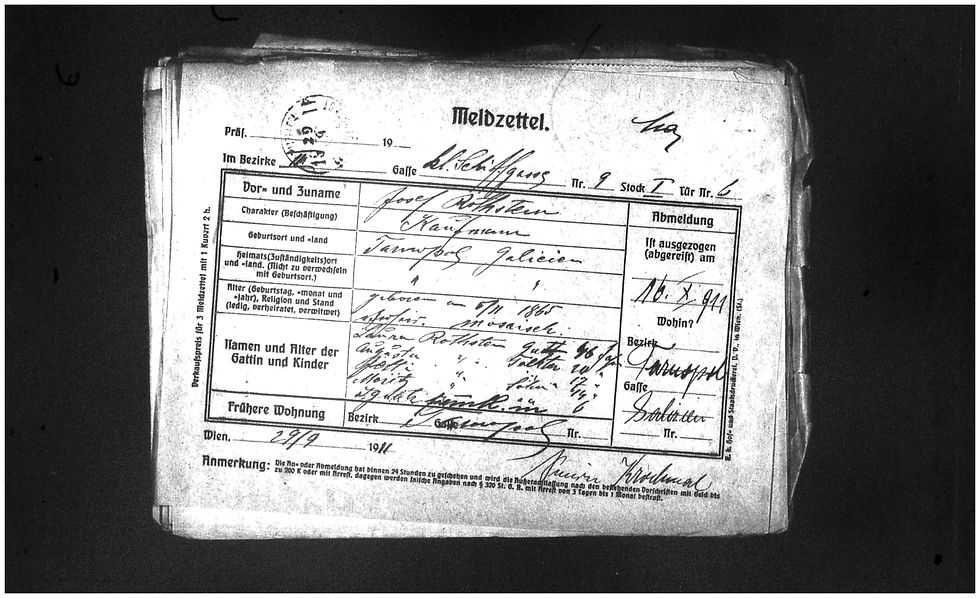 Meldzettel.
Präs. 19
29
Im Bezirke Gasse kl. Schiffgasse Nr. 9 Stock I Tür Nr. 6
Vor- und Zuname Josef Rothstein
Charakter (Beschäftigung) Kaufmann
Geburtsort und -land Tarnopol Galicien
Heimats(Zuständigkeits)ort und -land. (Nicht zu verwechseln mit Geburtsort.) " "
Alter (Geburtstag, -monat und -jahr), Religion und Stand (ledig, verheiratet, verwitwet) geboren am 5/11 1865
mosaisch.
Namen und Alter der Gattin und Kinder
Laura Rothstein Gattin 46
Auguste " Tochter 20 "
" 17 "
Moritz " Söhne 14 "
6
Frühere Wohnung Bezirk Gasse Tarnopol Nr.
Abmeldung
Ist ausgezogen (abgereist) am
16. X. 911
Wohin?
Bezirk Tarnopol
Gasse
Galizien
Nr.
Wien, 29/9 1911
Krochmal
Anmerkung: Die An- oder Abmeldung hat binnen 24 Stunden zu geschehen und wird die Außerachtlassung nach den bestehenden Vorschriften mit Geld bis
zu 200 K oder mit Arrest, dagegen werden falsche Angaben nach § 320 St. G. B. mit Arrest von 3 Tagen bis 1 Monat bestraft.
Verkaufspreis für 3 Meldzettel mit 1 Kuvert 2 h.
K. k. Hof- und Staatsdruckerei, D. V., in Wien. (St.)